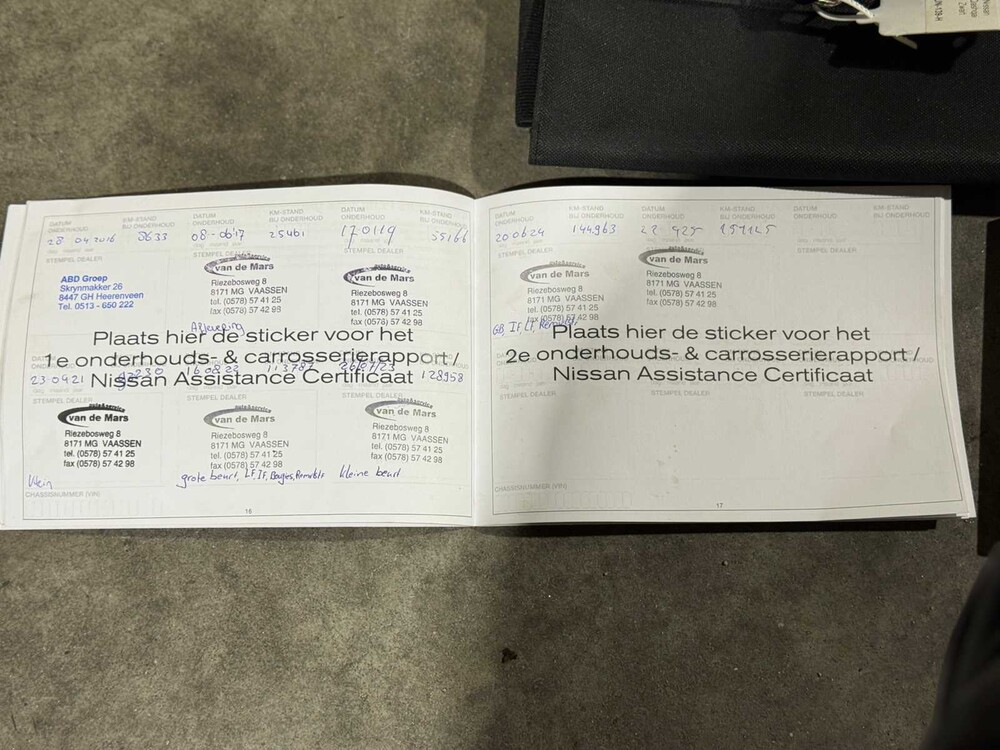 Nissan
Zwart
DATUM ONDERHOUD KM-STAND BIJ ONDERHOUD DATUM ONDERHOUD KM-STAND BIJ ONDERHOUD DATUM ONDERHOUD KM-STAND BIJ ONDERHOUD
28 04 2016 8633 08-06'17 25461 170119 55166
STEMPEL DEALER STEMPEL DEALER STEMPEL DEALER
ABD Groep
Skrynmakker 26
8447 GH Heerenveen
Tel. 0513 - 650 222
auto&service
van de Mars
Riezebosweg 8
8171 MG VAASSEN
tel. (0578) 57 41 25
fax (0578) 57 42 98
Aflevering
auto&service
van de Mars
Riezebosweg 8
8171 MG VAASSEN
tel. (0578) 57 41 25
fax (0578) 57 42 98
Plaats hier de sticker voor het
1e onderhouds- & carrosserierapport /
Nissan Assistance Certificaat
23-0421 113787 128958
STEMPEL DEALER STEMPEL DEALER STEMPEL DEALER
auto&service
van de Mars
Riezebosweg 8
8171 MG VAASSEN
tel. (0578) 57 41 25
fax (0578) 57 42 98
klein
auto&service
van de Mars
Riezebosweg 8
8171 MG VAASSEN
tel. (0578) 57 41 25
fax (0578) 57 42 98
grote beurt, LF, IF, Bougies, Remvlst
auto&service
van de Mars
Riezebosweg 8
8171 MG VAASSEN
tel. (0578) 57 41 25
fax (0578) 57 42 98
kleine beurt
CHASSISNUMMER (VIN)
16
DATUM ONDERHOUD KM-STAND BIJ ONDERHOUD DATUM ONDERHOUD KM-STAND BIJ ONDERHOUD DATUM ONDERHOUD KM-STAND BIJ ONDERHOUD
20 06 24 144963
STEMPEL DEALER STEMPEL DEALER STEMPEL DEALER
auto&service
van de Mars
Riezebosweg 8
8171 MG VAASSEN
tel. (0578) 57 41 25
fax (0578) 57 42 98
GB, IF, LF, Remvlst,
auto&service
van de Mars
Riezebosweg 8
8171 MG VAASSEN
tel. (0578) 57 41 25
fax (0578) 57 42 98
Plaats hier de sticker voor het
2e onderhouds- & carrosserierapport /
Nissan Assistance Certificaat
STEMPEL DEALER STEMPEL DEALER STEMPEL DEALER
CHASSISNUMMER (VIN)
17